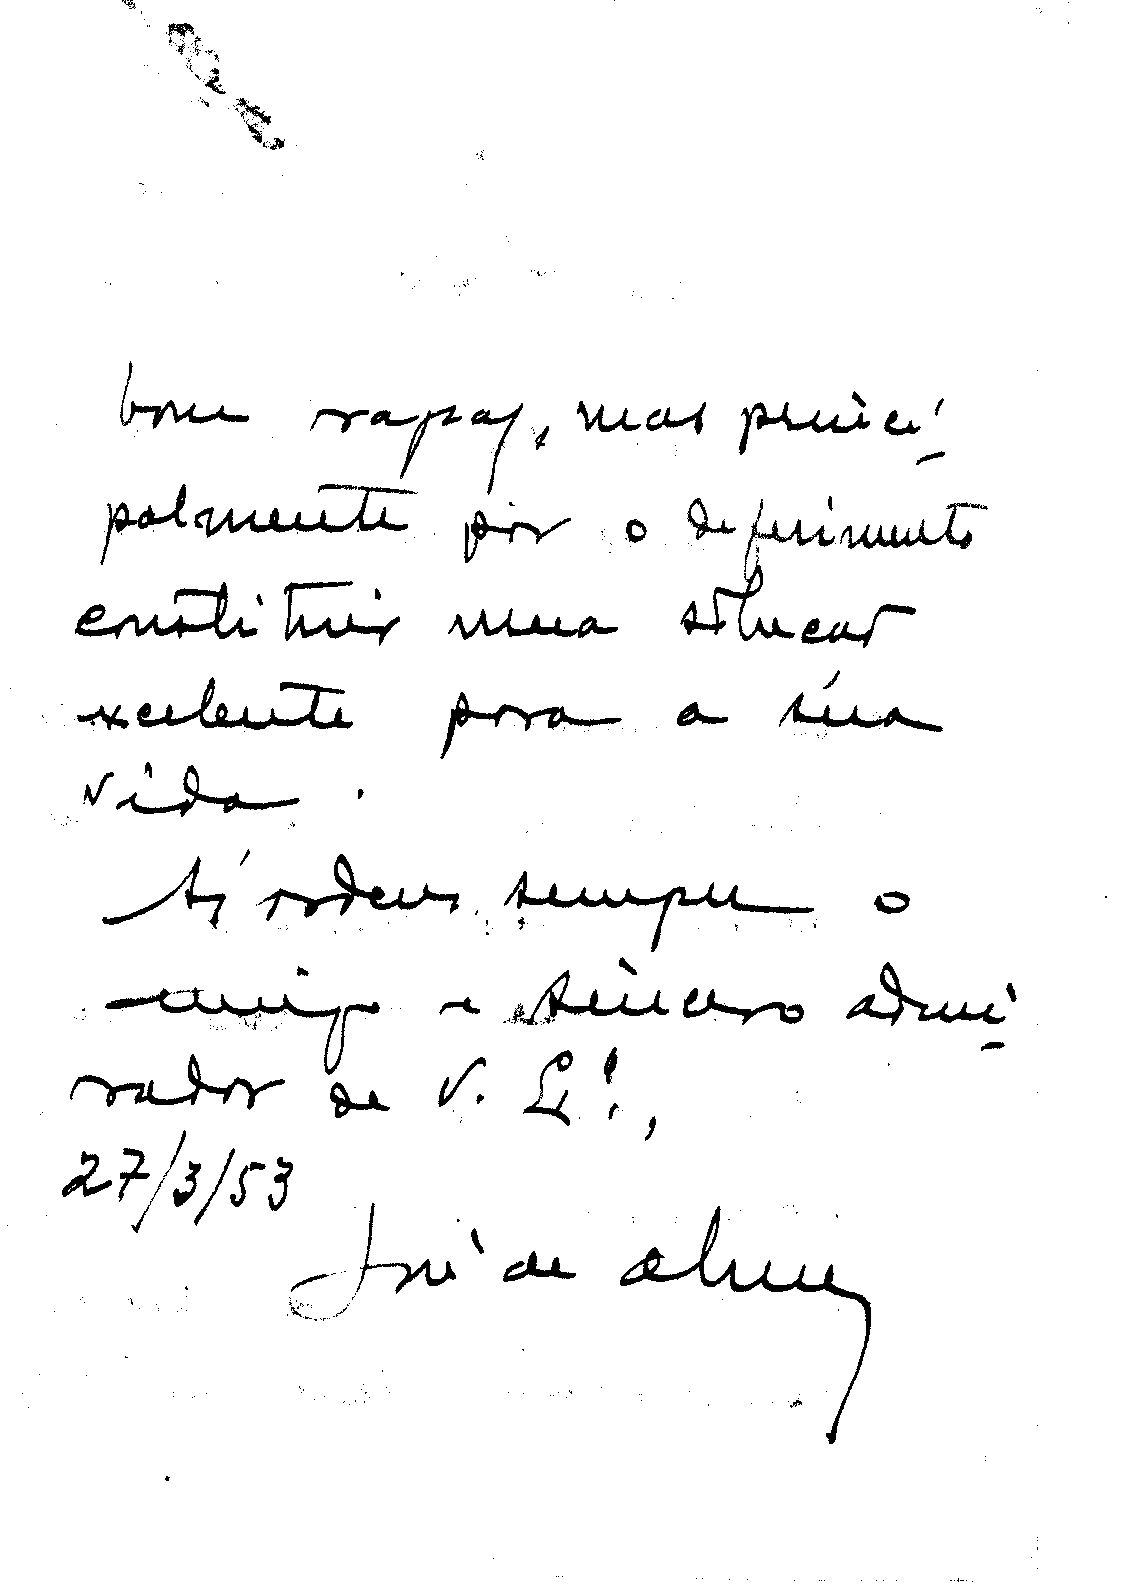 bom rapaz, mas princi-
palmente por o deferimento
constituir uma solução
excelente para a sua
vida.
Às ordens sempre o
amigo e sincero admi-
rador de V. Exª.,
27/3/53
José de